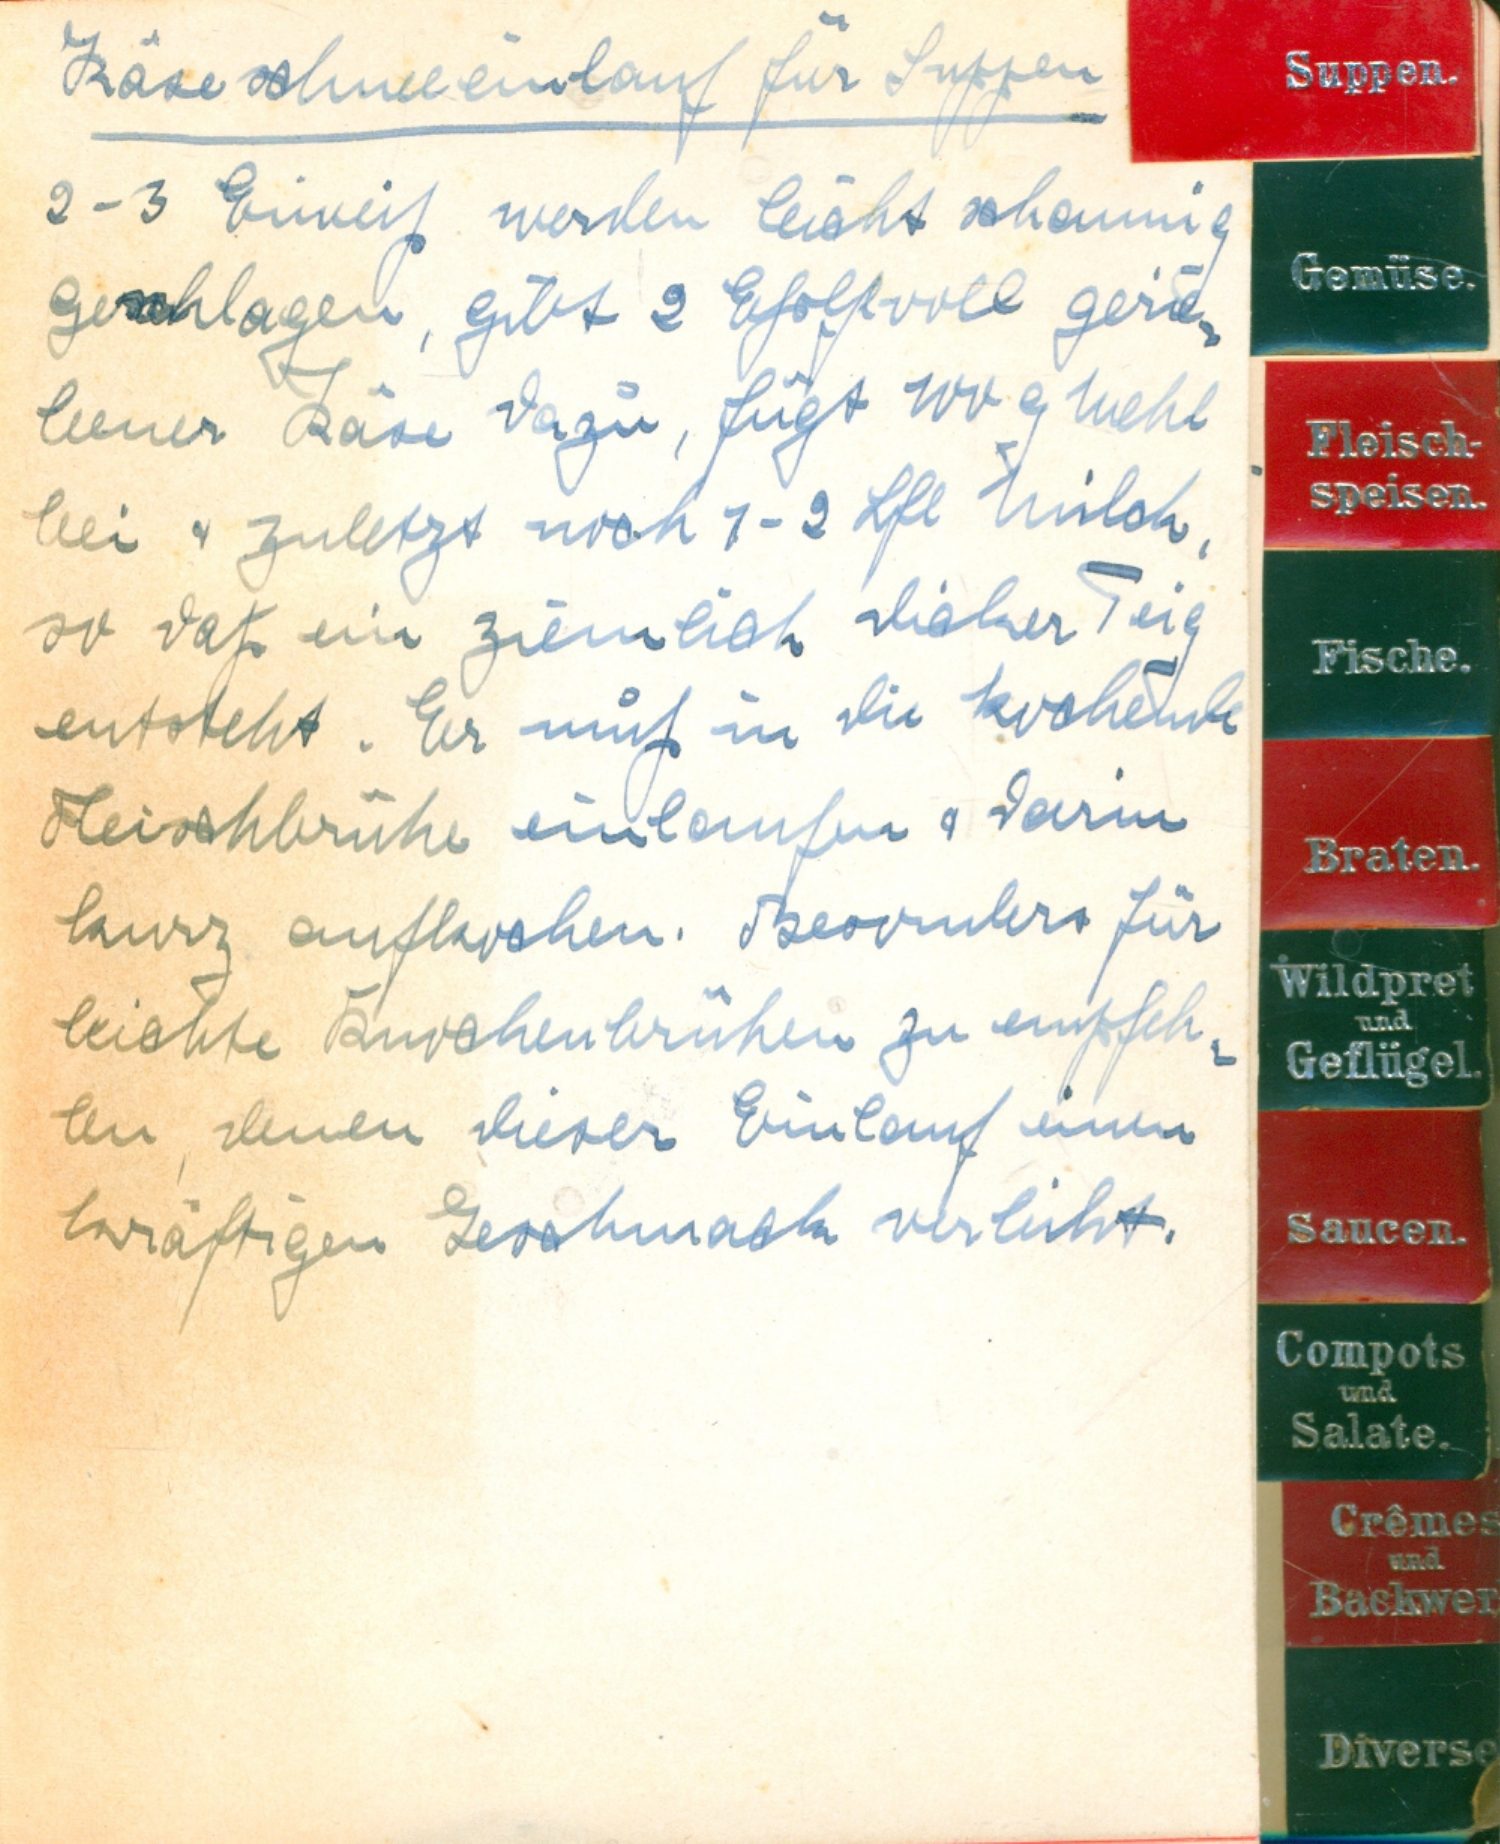 Käseschneeeinlauf für Suppen
2-3 Eiweiß werden leicht schaumig
geschlagen, gibt 2 Eßlffvoll gerie-
bener Käse dazu, fügt 100 g Mehl
bei & zuletzt noch 1-2 Lfl Milch,
so daß ein ziemlich dicker Teig
entsteht. Er muß in die kochende
Fleischbrühe einlaufen & darin
kurz aufkochen. Besonders für
leichte Knochenbrühen zu empfeh-
len, denen dieser Einlauf einen
kräftigen Geschmack verleiht.
Suppen.
Gemüse.
Fleisch-
speisen.
Fische.
Braten.
Wildpret
und
Geflügel.
Saucen.
Compots
und
Salate.
Crêmes
und
Backwer
Diverse